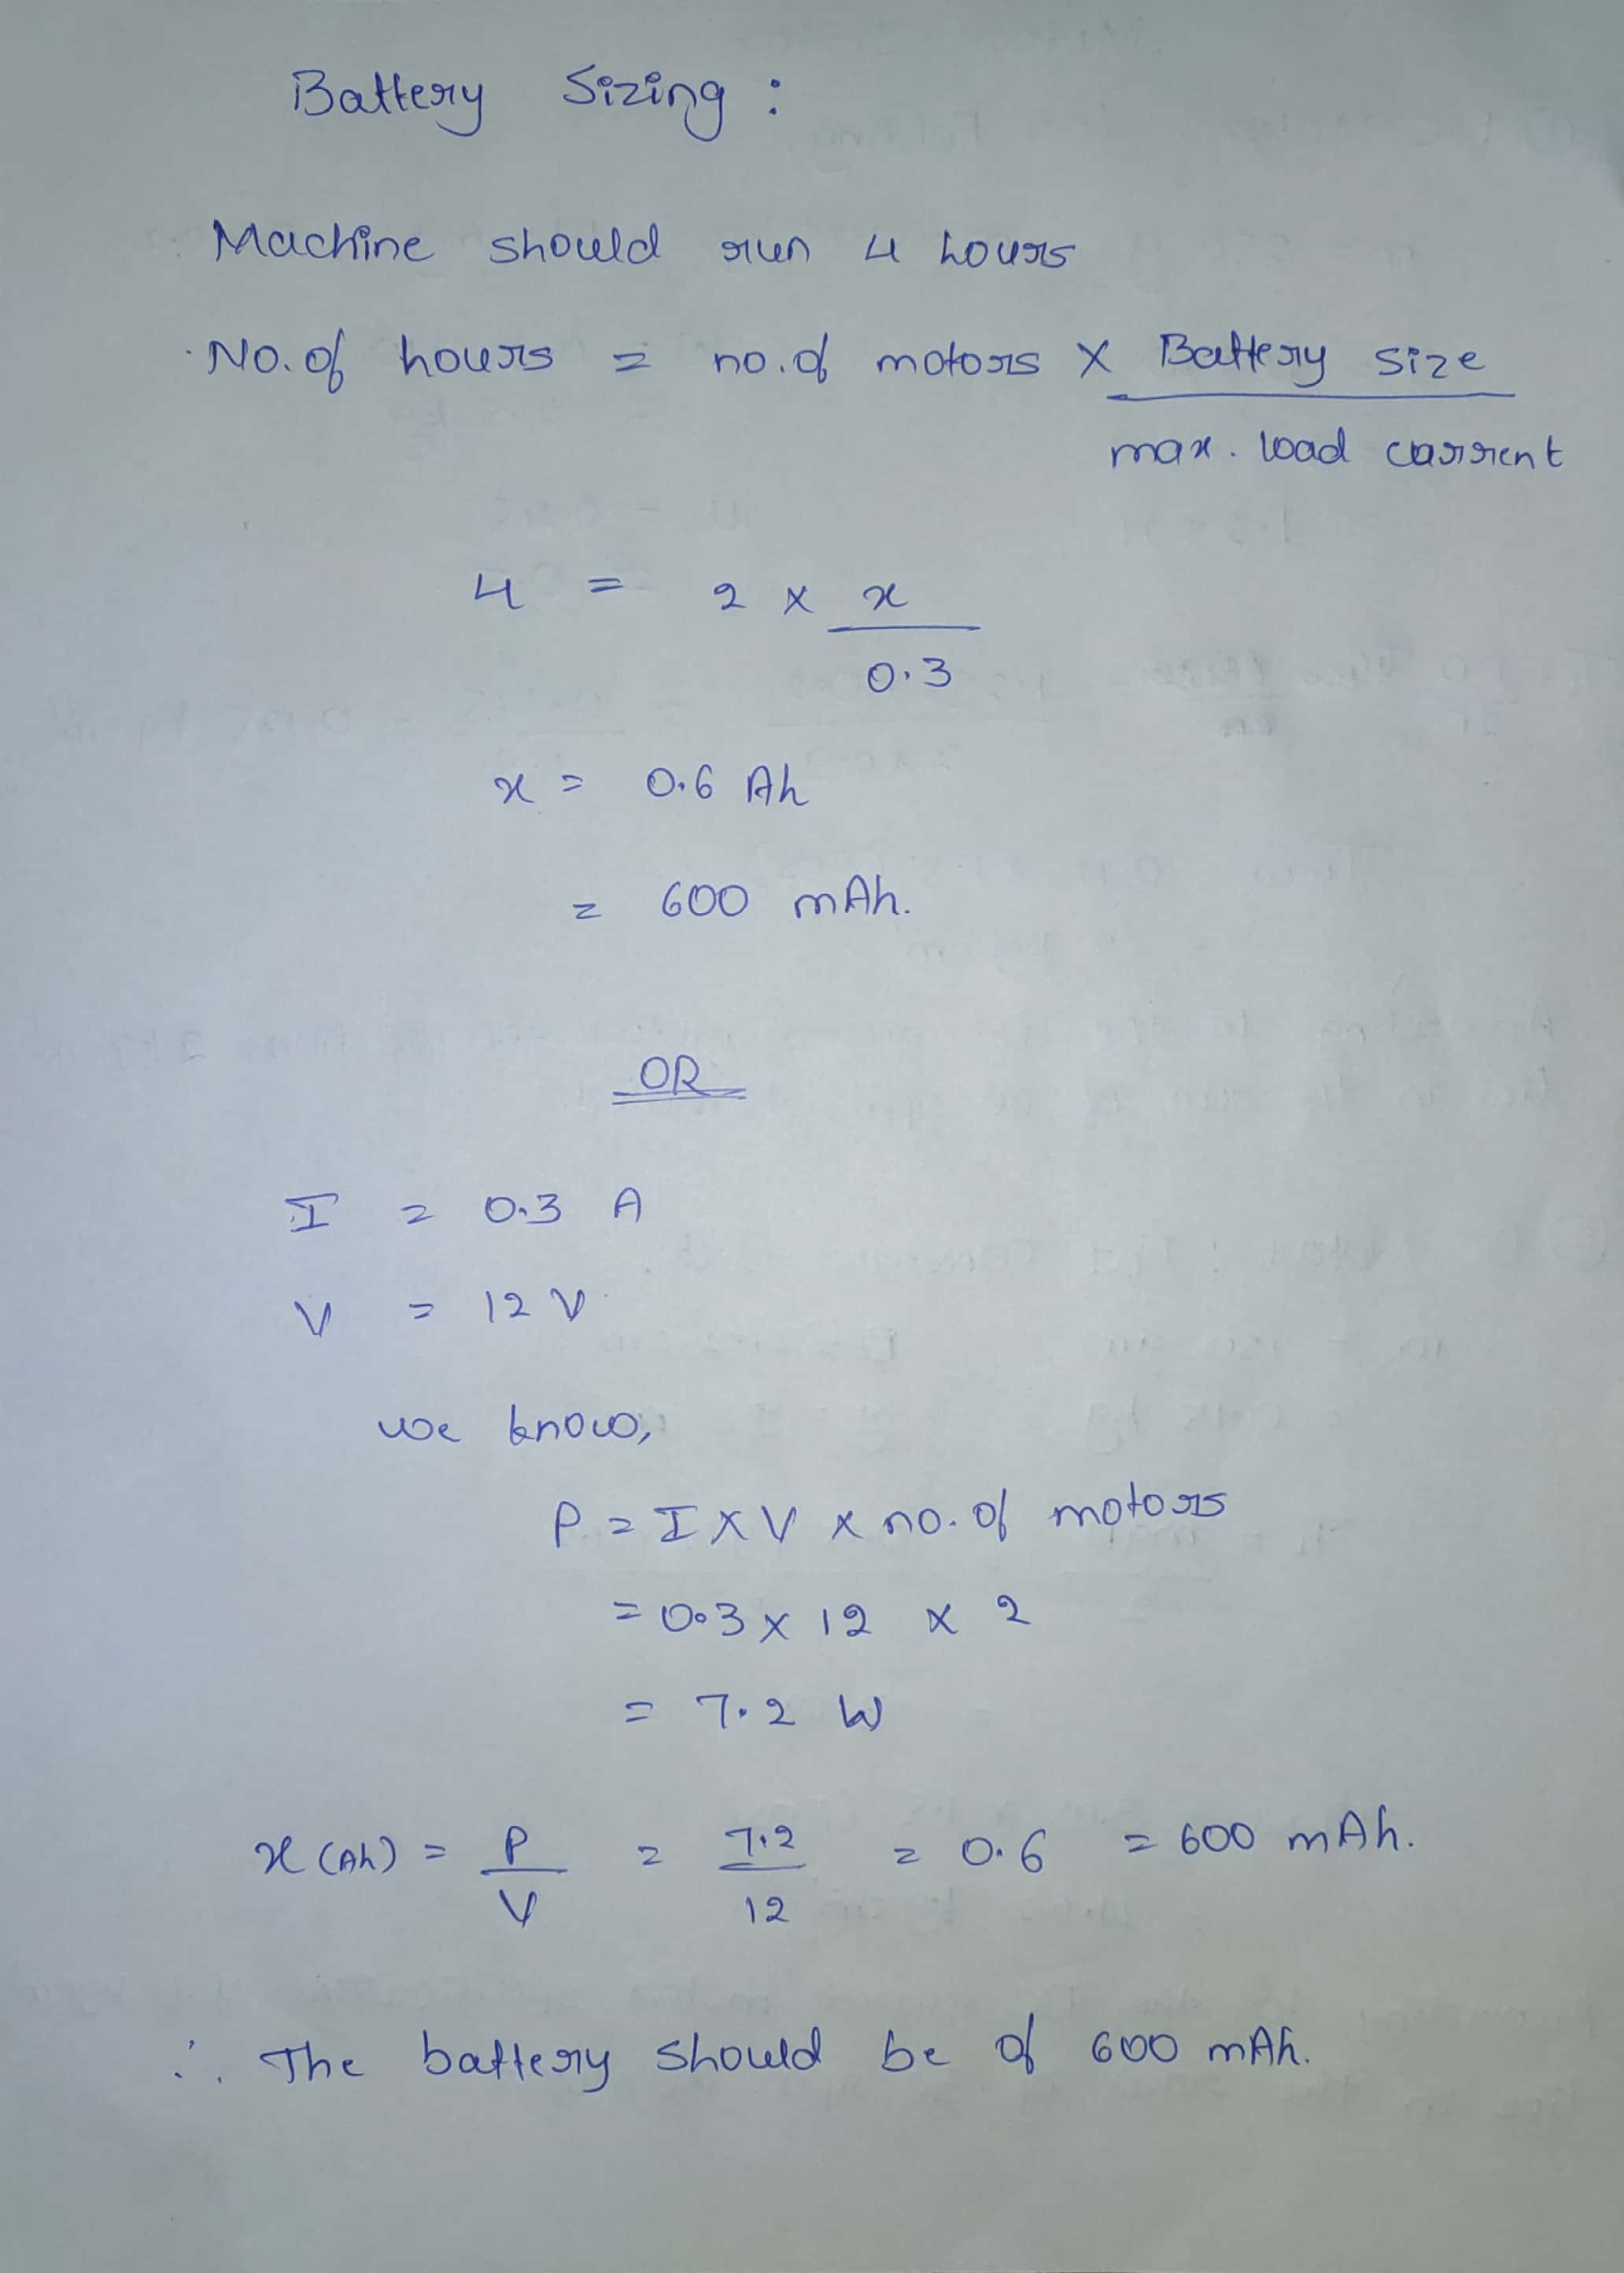 Battery Sizing :
Machine should run 4 hours
No. of hours = no. of motors x Battery size
max. load current
4 = 2 x x
0.3
x = 0.6 Ah
= 600 mAh.
OR
I = 0.3 A
V = 12 V
we know,
P = I x V x no. of motors
= 0.3 x 12 x 2
= 7.2 W
x (Ah) = P = 7.2 = 0.6 = 600 mAh.
V 12
∴ The battery should be of 600 mAh.